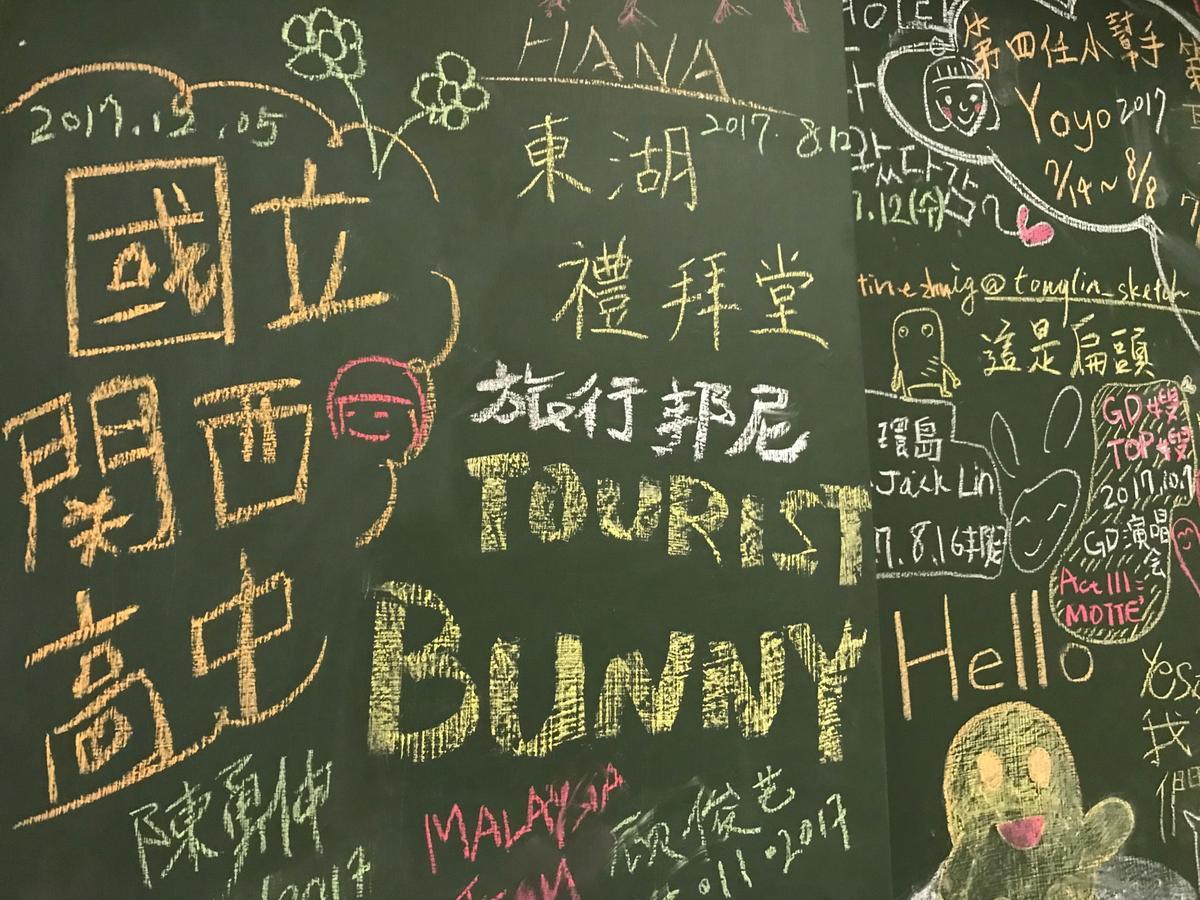 2017.12.05
國立
関西
高中
陳勇
2017
HANA
東湖
2017. 8.12
禮拜堂
旅行邦尼
TOURIST
BUNNY
MALAYSIA
俊
11.2017
HOTEL
第四任小幫手
Yoyo 2017
7/14~8/8
@tonylin_sketch
這是扁頭
環島
Jack Lin
7.8.16
GD嫂
TOP嫂
2017.10.7
GD演唱
会
Act III:
MOTTE
Hello
Yes
我
們